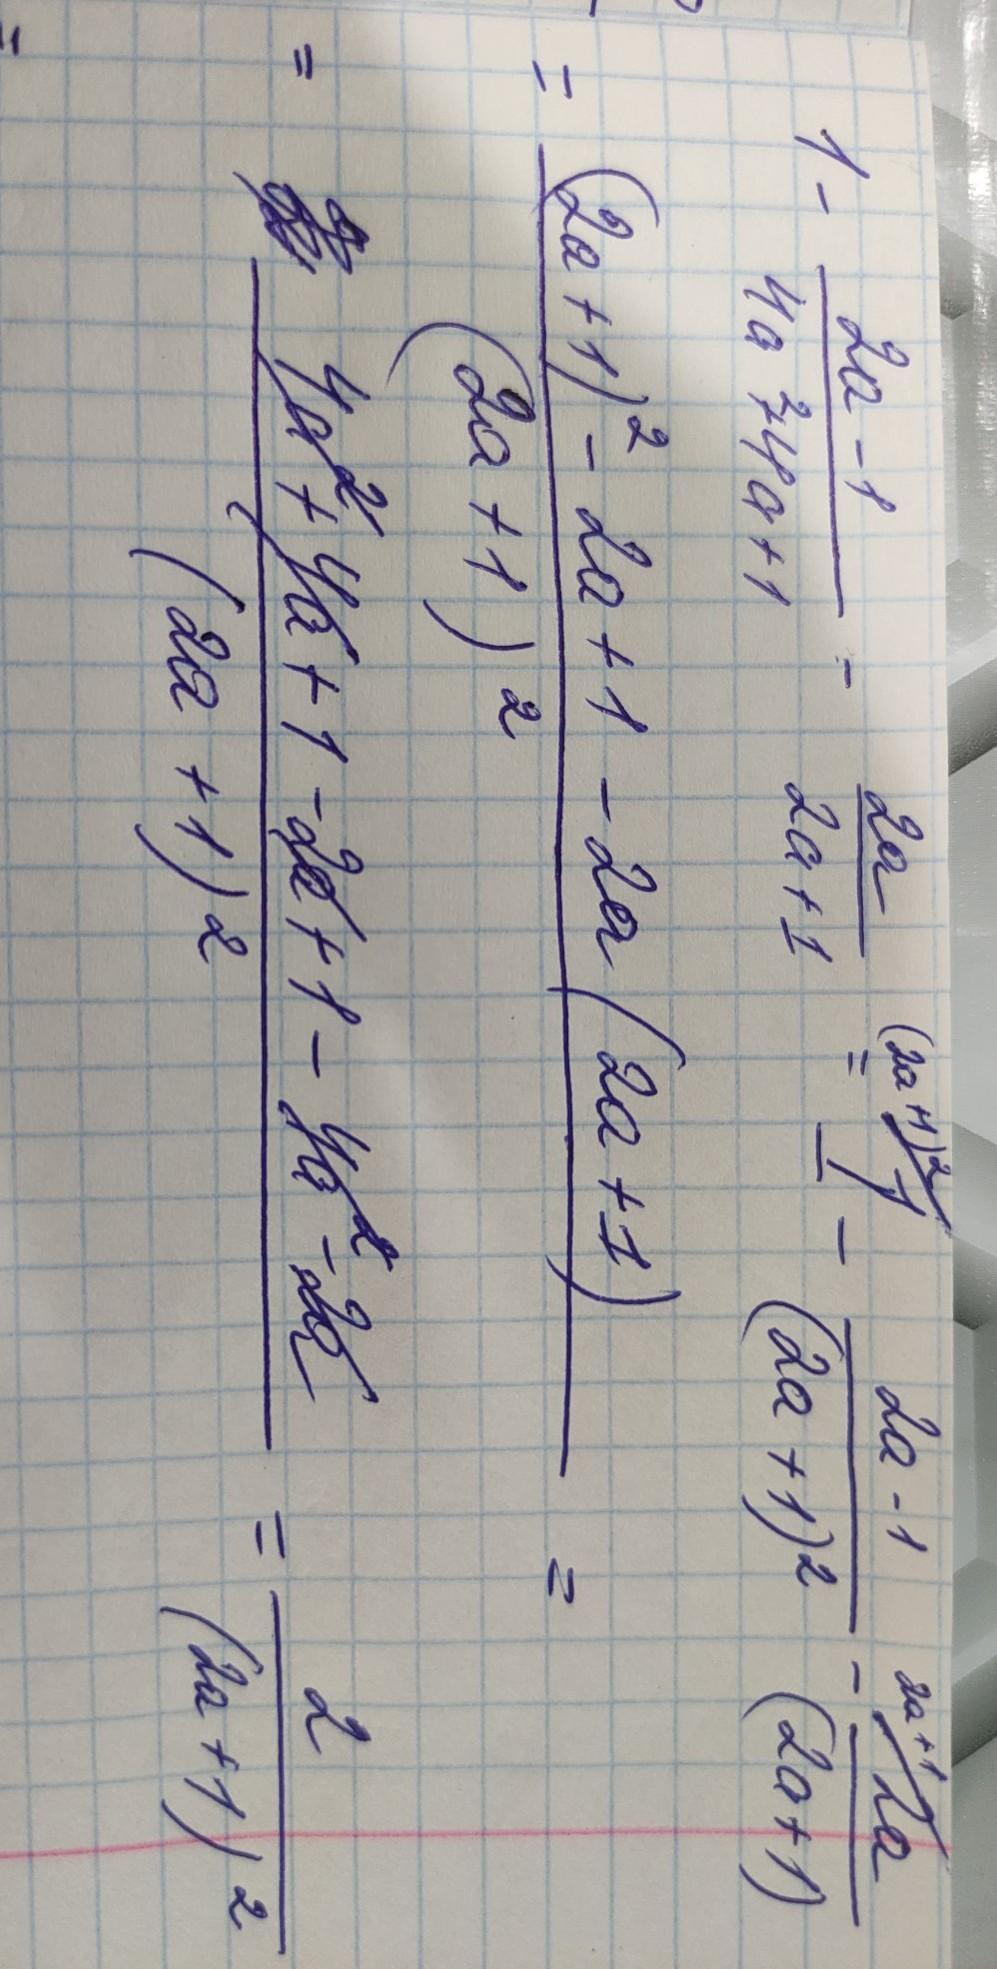 1 - (2a - 1)/(4a² + 4a + 1) - 2a/(2a + 1) = (2a+1)²/1/1 - (2a - 1)/(2a + 1)² - 2a+1/2a/(2a + 1)
= ((2a + 1)² - 2a + 1 - 2a (2a + 1))/(2a + 1)² =
= (4a² + 4a + 1 - 2a + 1 - 4a² - 2a)/(2a + 1)² = 2/(2a + 1)²